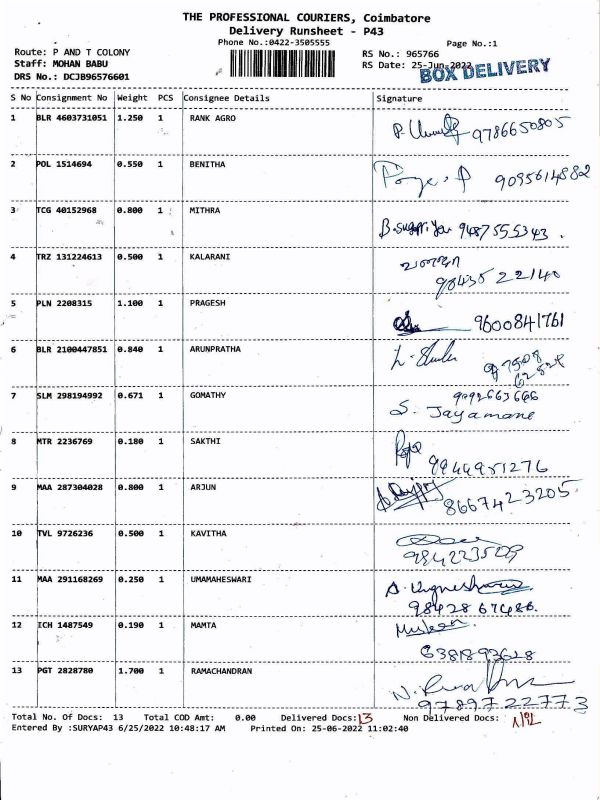 THE PROFESSIONAL COURIERS, Coimbatore
Delivery Runsheet - P43
Phone No.:0422-3505555
Page No.:1
Route: P AND T COLONY
RS No.: 965766
Staff: MOHAN BABU
RS Date: 25-Jun-2022
DRS No.: DCJB96576601
BOX DELIVERY
S No Consignment No Weight PCS Consignee Details Signature
1 BLR 4603731051 1.250 1 RANK AGRO 9786650805
2 POL 1514694 0.550 1 BENITHA 9095614882
3 TCG 40152968 0.800 1 MITHRA 9487555343.
4 TRZ 131224613 0.500 1 KALARANI
9843522140
5 PLN 2208315 1.100 1 PRAGESH 9600841761
6 BLR 2100447851 0.840 1 ARUNPRATHA
7 SLM 298194992 0.671 1 GOMATHY 9092663666
S. Jayamane
8 MTR 2236769 0.180 1 SAKTHI
9944951276
9 MAA 287304028 0.800 1 ARJUN 8667423205
10 TVL 9726236 0.500 1 KAVITHA
11 MAA 291168269 0.250 1 UMAMAHESWARI
98428 67486.
12 ICH 1487549 0.190 1 MAMTA
6381893628
13 PGT 2828780 1.700 1 RAMACHANDRAN
9789722773
Total No. Of Docs: 13 Total COD Amt: 0.00 Delivered Docs: 13 Non Delivered Docs: Nil
Entered By :SURYAP43 6/25/2022 10:48:17 AM Printed On: 25-06-2022 11:02:40